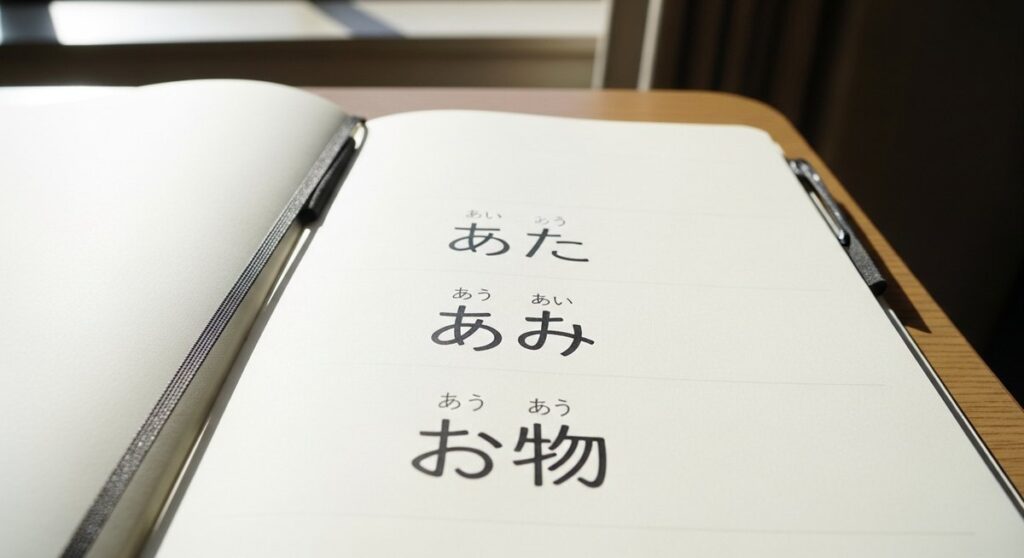 あい あう
あた
あう あい
あみ
あう あう
お物